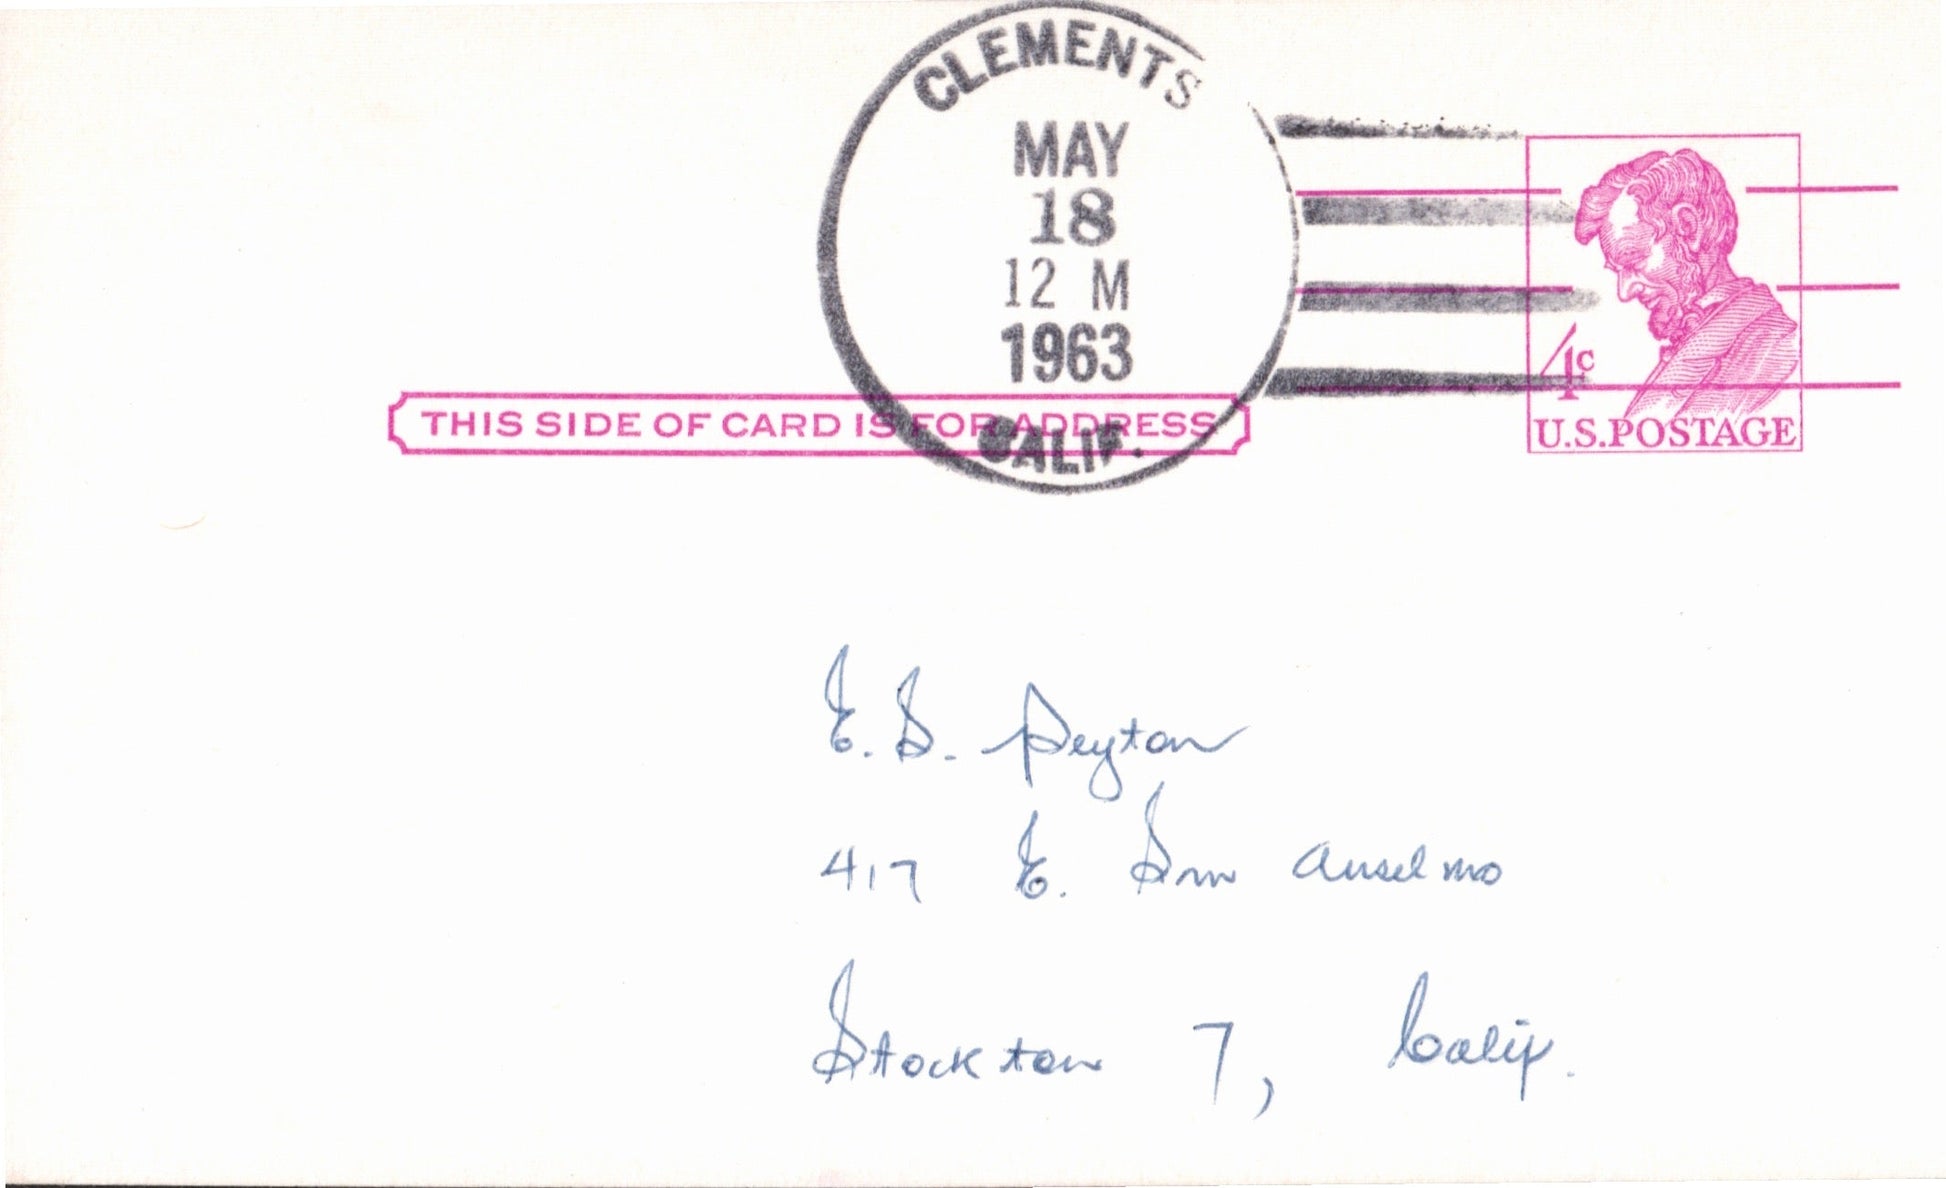 CLEMENTS
MAY
18
12 M
1963
CALIF.
THIS SIDE OF CARD IS FOR ADDRESS
4c
U.S.POSTAGE
E. S. Peyton
417 E. San Anselmo
Stockton 7, Calif.